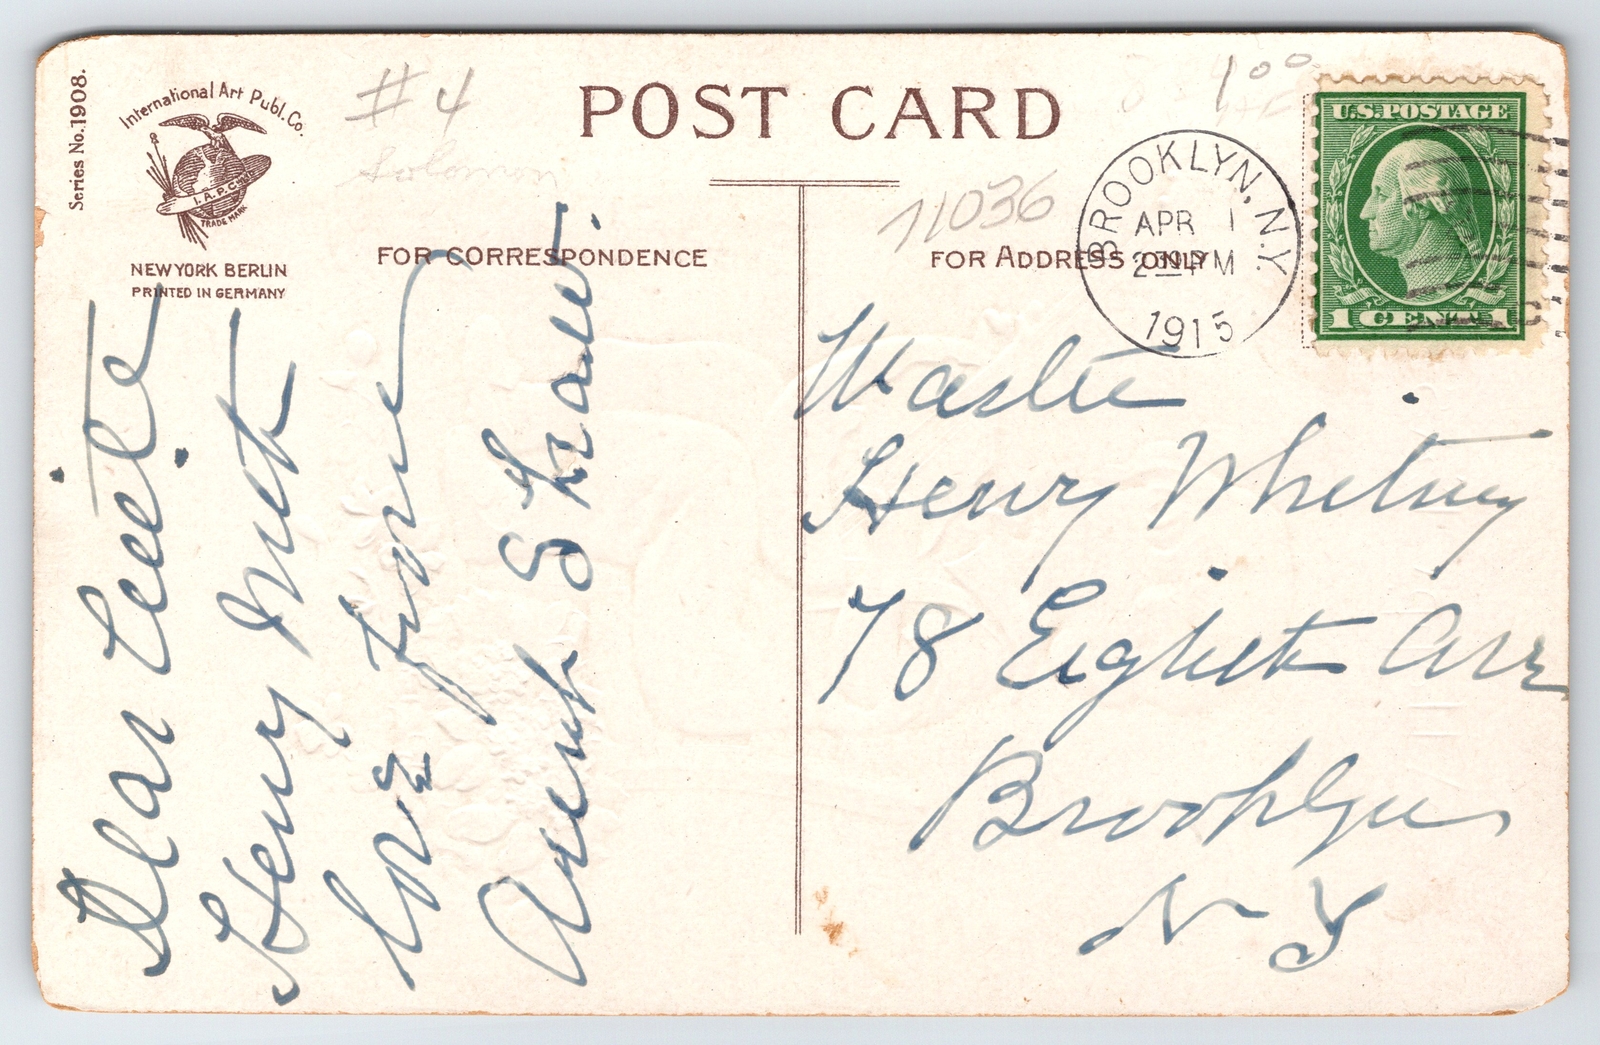 Series No. 1908.
International Art Publ. Co.
I. A. P. C.
TRADE MARK
NEW YORK BERLIN
PRINTED IN GERMANY
#4
Solomon
POST CARD
1.00
11036
FOR CORRESPONDENCE
FOR ADDRESS ONLY
BROOKLYN, N.Y.
APR 1
2 PM
1915
U.S. POSTAGE
1 CENT 1
Dear Little
Henry with
love from
Aunt
Master
Henry Whitney
78 Eighth Ave
Brooklyn
N Y